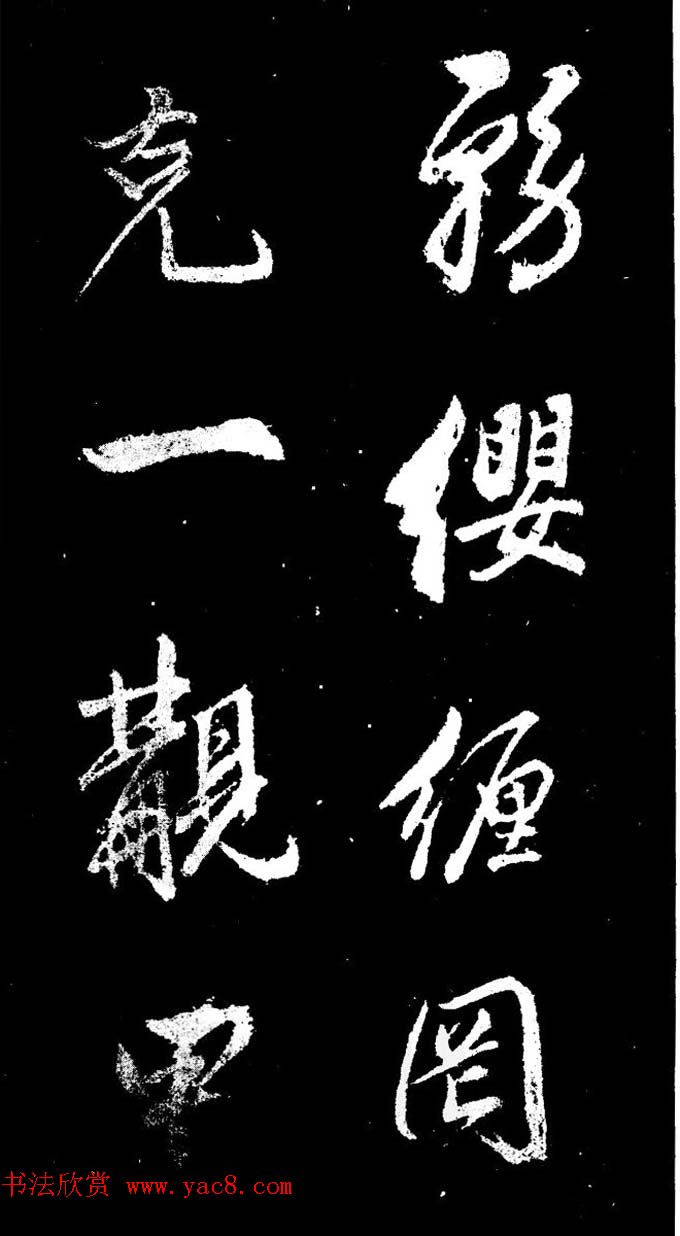 務纓纏罔
克一觀甲
书法欣赏 www.yac8.com